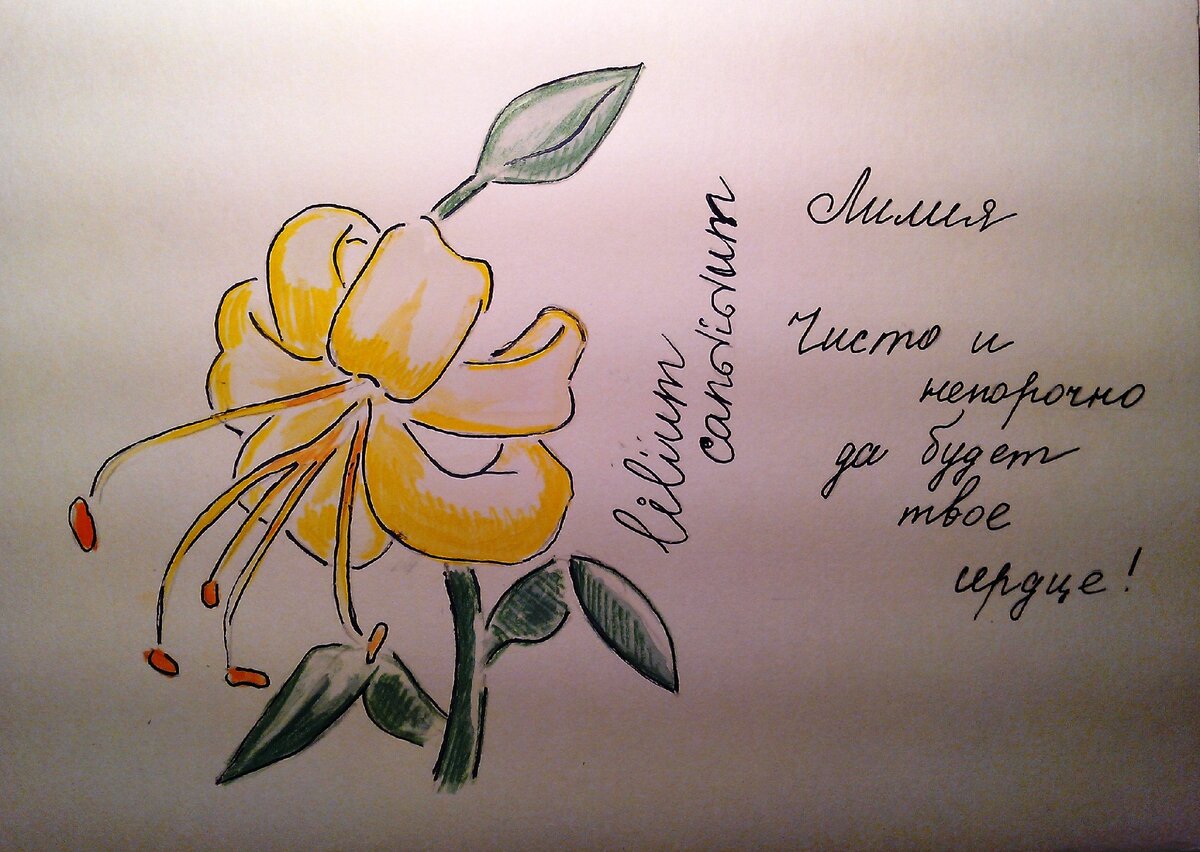 Лилия
lilium
candidum
Чисто и
непорочно
да будет
твое
сердце!